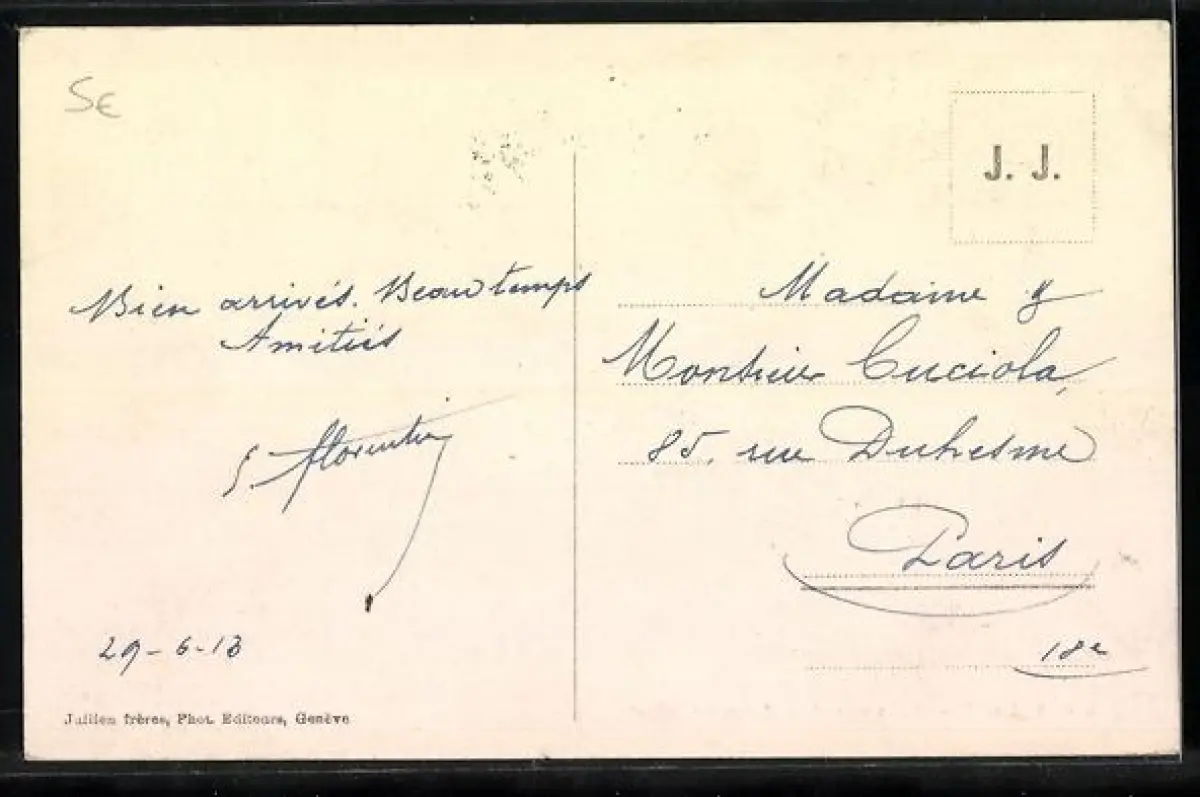 5€
J. J.
Bien arrivés. Beau temps
Amitiés
S. Florentin
29-6-13
Jullien frères, Phot. Editeurs, Genève
Madame &
Monsieur Cuciola,
85, rue Duhesme
Paris
18e